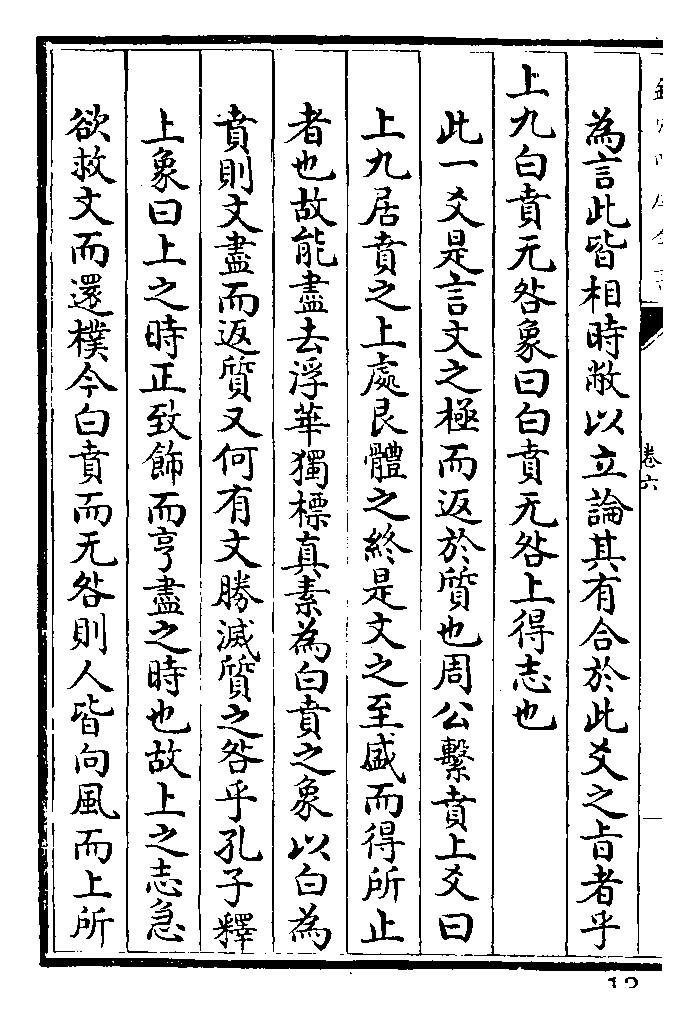 為言此皆相時敝以立論其有合於此爻之旨者乎
上九白賁无咎象曰白賁无咎上得志也
此一爻是言文之極而返於質也周公繫賁上爻曰
上九居賁之上處艮體之終是文之至盛而得所止
者也故能盡去浮華獨標真素為白賁之象以白為
賁則文盡而返質又何有文勝滅質之咎乎孔子釋
上象曰上之時正致飾而亨盡之時也故上之志急
欲救文而還樸今白賁而无咎則人皆向風而上所
卷六